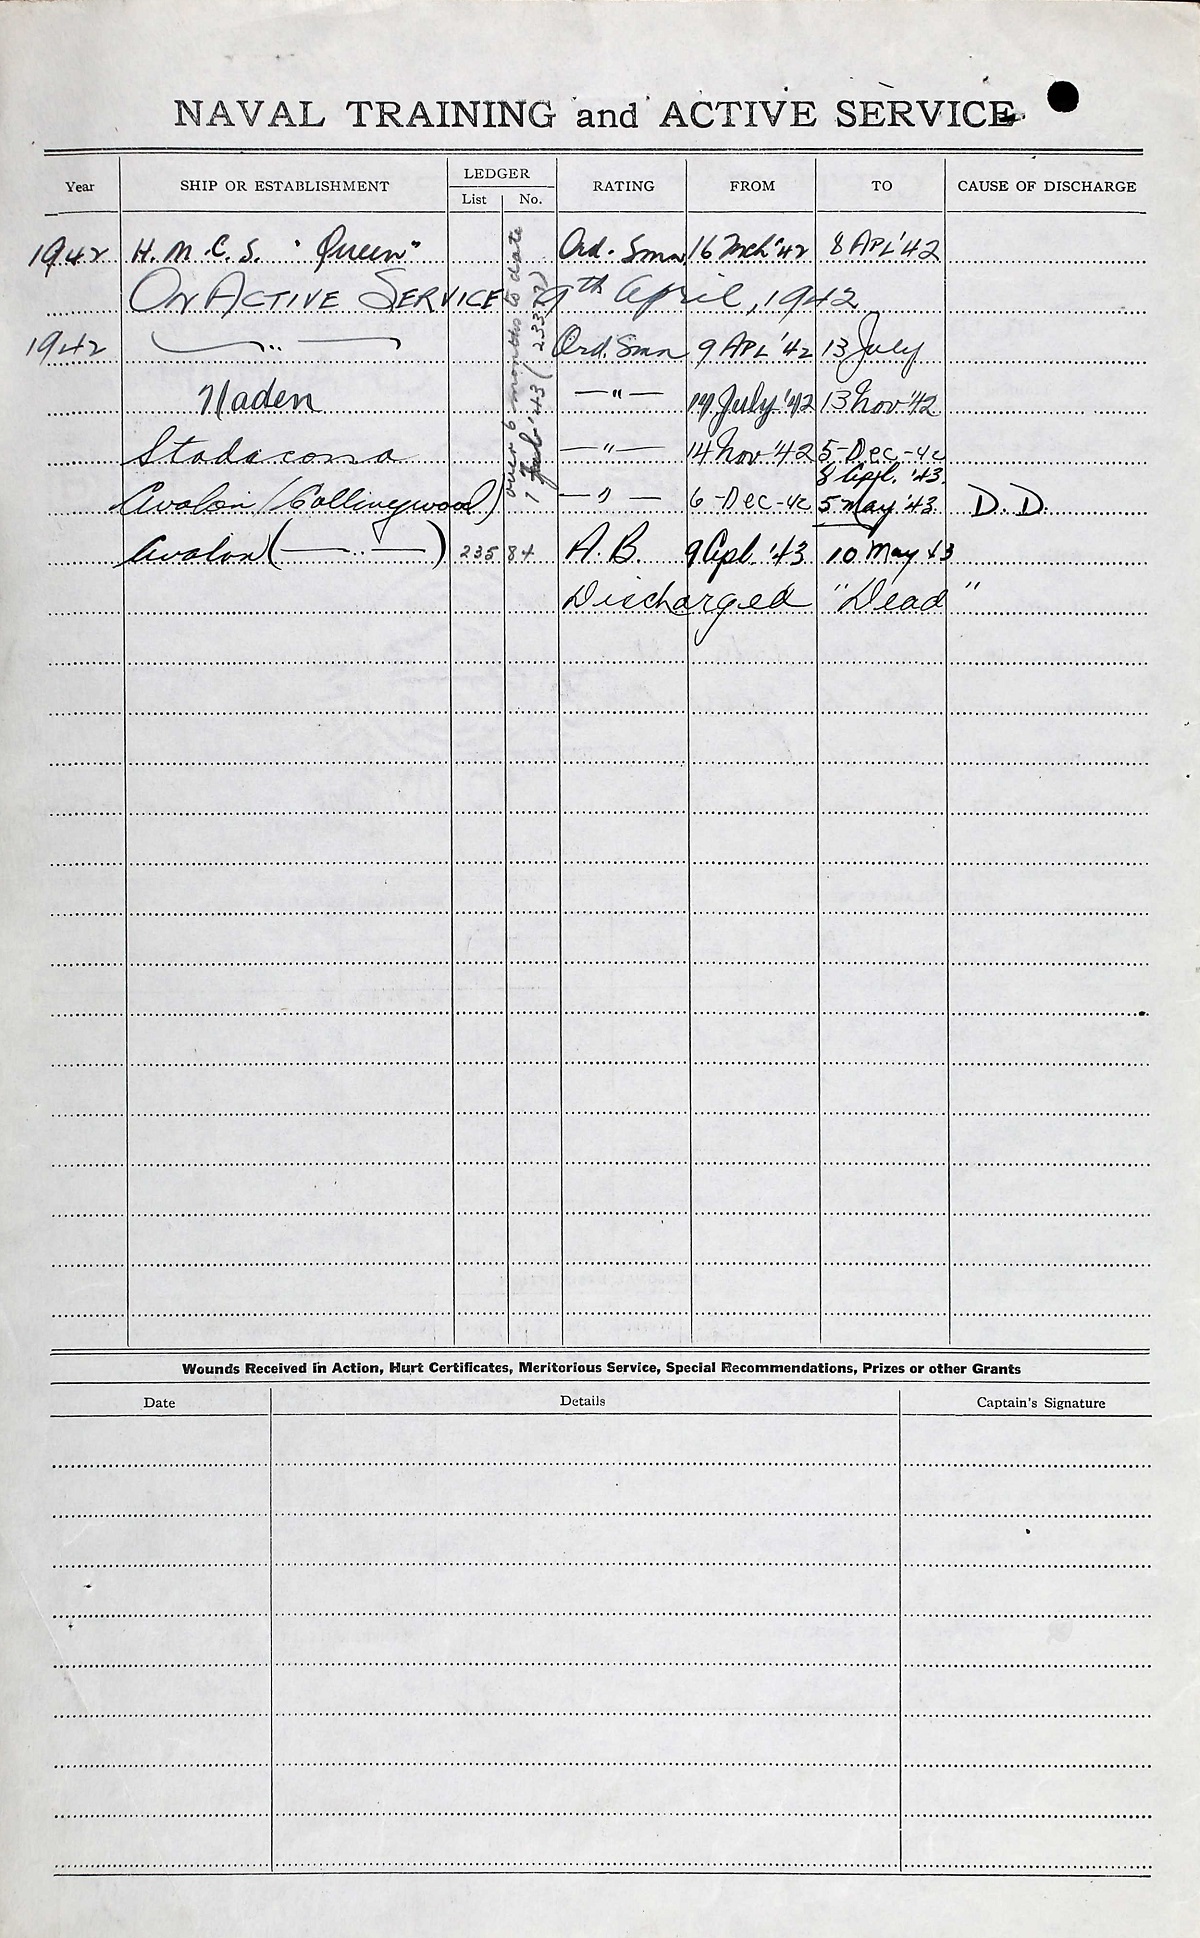 NAVAL TRAINING and ACTIVE SERVICE
Year SHIP OR ESTABLISHMENT LEDGER List No. RATING FROM TO CAUSE OF DISCHARGE
1942 H.M.C.S. "Queen" Ord. Smn 16 Mch '42 8 APL '42
ON ACTIVE SERVICE 9th April, 1942
1942 —〃— Ord. Smn 9 APL '42 13 July
Naden —"— 14 July '42 13 Nov '42
Stadacona —"— 14 Nov '42 5-Dec-42
8 Apl. '43.
Avalon (Collingwood) —"— 6-Dec-42 5 May '43 D.D.
Avalon (—〃—) 235 84 A.B. 9 Apl. '43 10 May 43
Discharged "Dead"
over 6 months to date
1 '43
Wounds Received in Action, Hurt Certificates, Meritorious Service, Special Recommendations, Prizes or other Grants
Date Details Captain's Signature